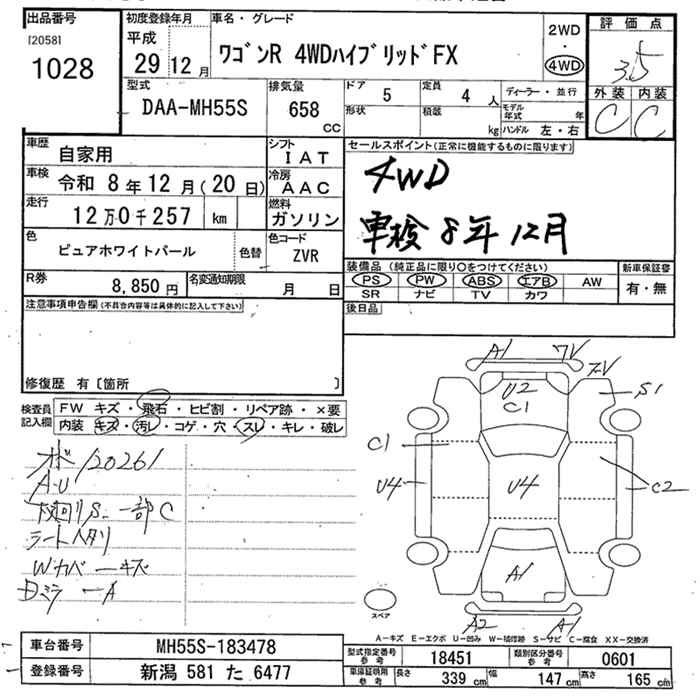 出品番号
[2058]
1028
初度登録年月
平成
29年12月
車名・グレード
ワゴンR 4WDハイブリッドFX
2WD
・
4WD
評価点
3.5
外装 内装
C C
型式
DAA-MH55S
排気量
658
CC
ドア
5
定員
4人
形状
積載
kg
ディーラー・並行
モデル年式 年
ハンドル 左・右
車歴
自家用
シフト
IAT
車検
令和 8年12月(20日)
冷房
AAC
走行
12万0千257 km
燃料
ガソリン
色
ピュアホワイトパール
色替
色コード
ZVR
R券
8,850円
名変通知期限
月 日
セールスポイント(正常に機能するものに限ります)
4WD
車検 8年12月
装備品 (純正品に限り○をつけてください)
新車保証書
PS PW ABS エアB AW
SR ナビ TV カワ
有・無
後日品
注意事項申告欄(不具合内容等は具体的に記入して下さい)
修復歴 有〔箇所 〕
検査員記入欄
FW キズ・飛石・ヒビ割・リペア跡・×要
内装 キズ・汚レ・コゲ・穴・スレ・キレ・破レ
120261
A・U
下廻りS 一部C
シートヘタリ
Wカバーキズ
DミラーA
A1 7V
7V
U2
C1
S1
C1
U4
U4
C2
A1
A2 A1
スペア
A－キズ E－エクボ U－凹み W－補修跡 S－サビ C－腐食 XX－交換済
車台番号
MH55S-183478
登録番号
新潟 581 た 6477
型式指定番号
参考
18451
類別区分番号
参考
0601
車庫証明用
参考
長さ
339 cm
幅
147 cm
高さ
165 cm